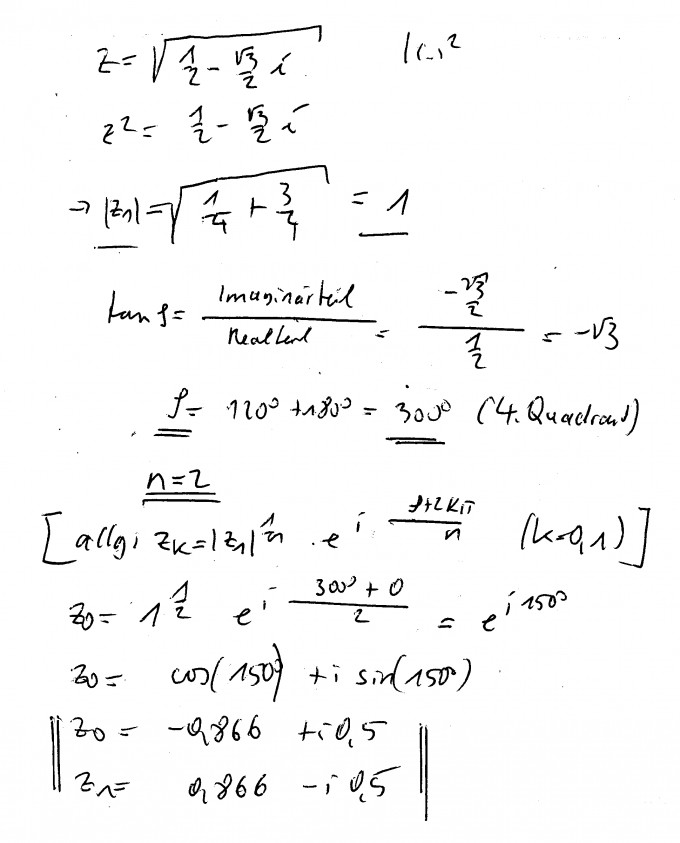 z = √(1/2 - √3/2 i) |(..)²
z² = 1/2 - √3/2 i
→ |z₁| = √(1/4 + 3/4) = 1
tan φ = Imaginärteil / Realteil = (-√3/2) / (1/2) = -√3
φ = 120° + 180° = 300° (4. Quadrant)
n = 2
[allg: z_K = |z₁|^(1/n) · e^(i · (φ+2Kπ)/n) (k=0,1)]
z₀ = 1^(1/2) e^(i (300° + 0)/2) = e^(i 150°)
z₀ = cos(150°) + i sin(150°)
z₀ = -0,866 + i 0,5
z₁ = 0,866 - i 0,5